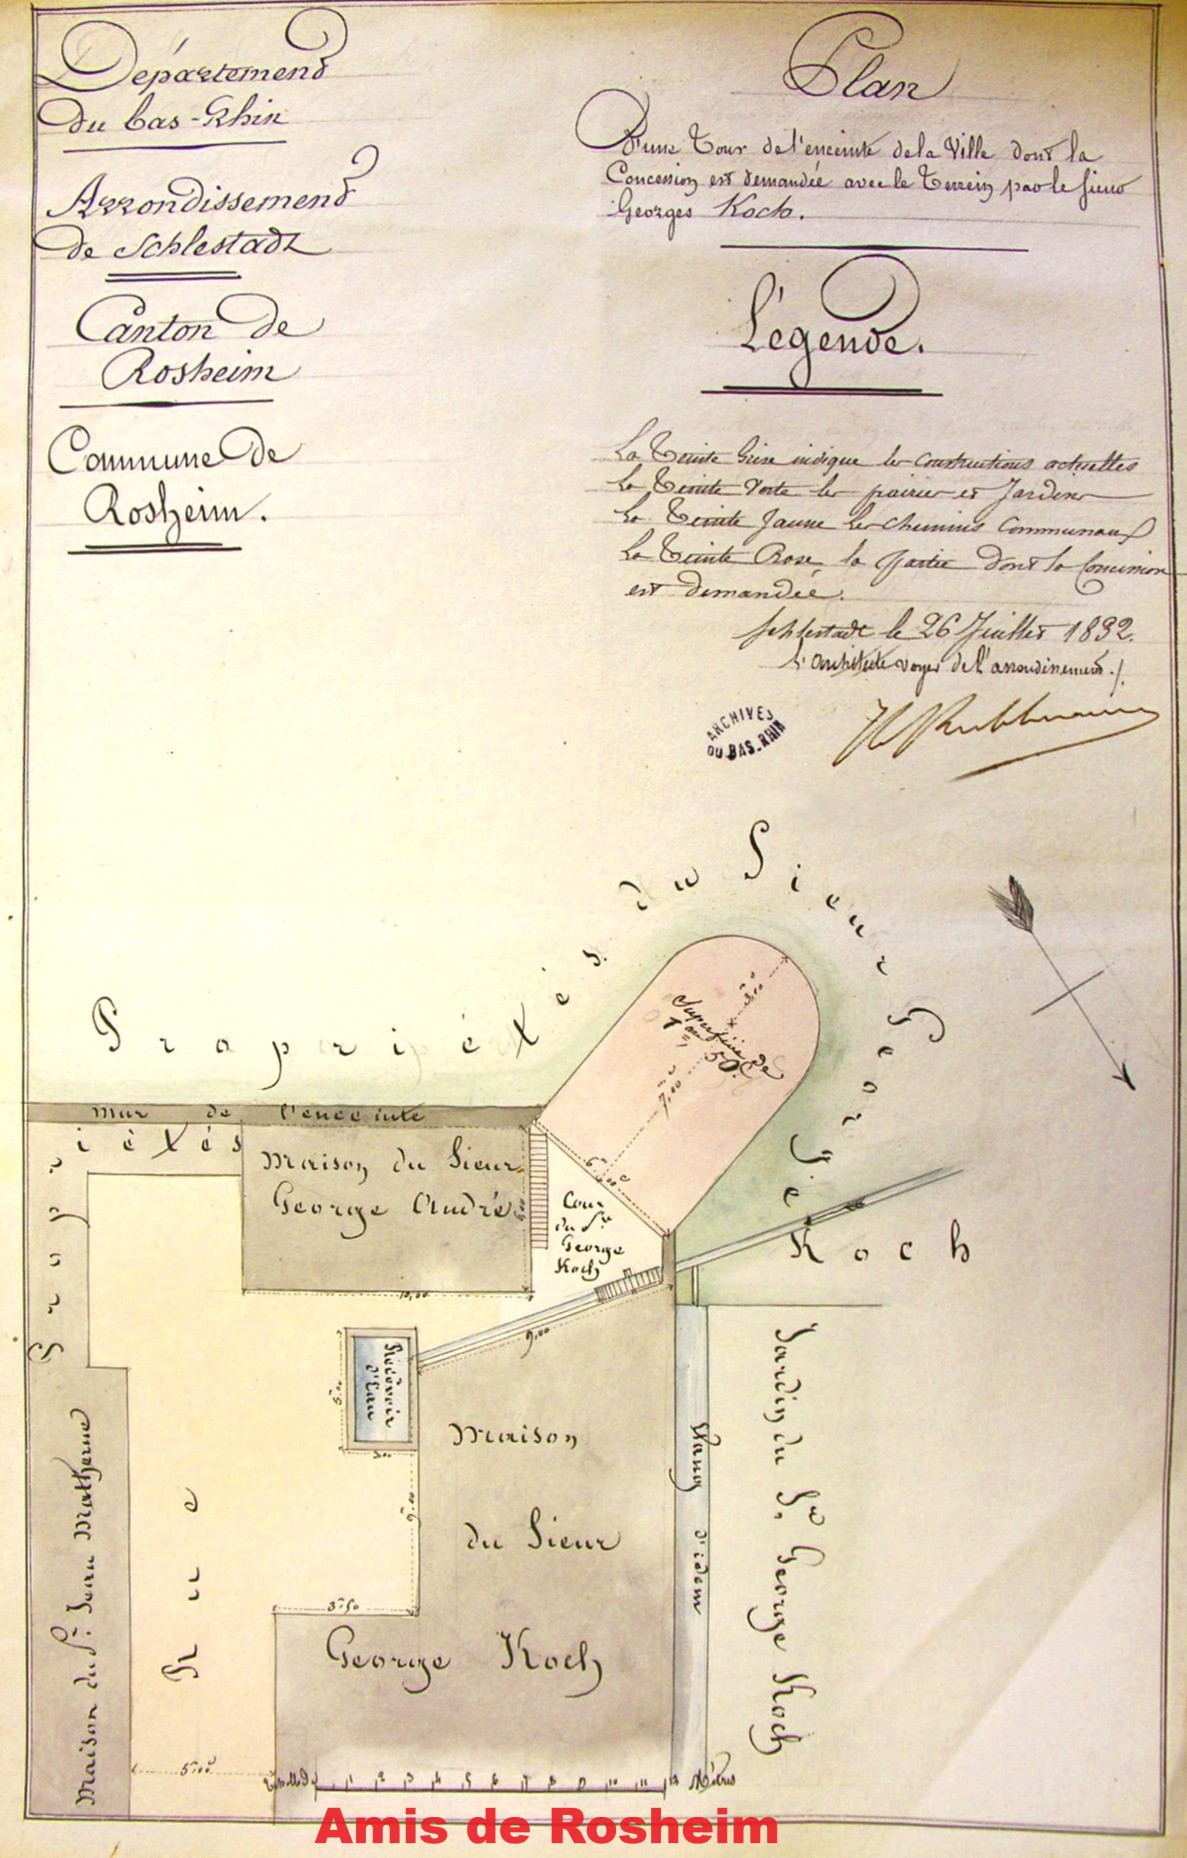 Département
du bas-Rhin
Arrondissement
de Schlestadt
Canton de
Rosheim
Commune de
Rosheim.
Plan
D'une Tour de l'enceinte de la Ville dont la
Concession est demandée avec le Terrein par le sieur
Georges Koch.
Légende.
La Teinte Grise indique les Constructions actuelles
La Teinte Verte les prairies et Jardins
La Teinte Jaune les Chemins Communaux
La Teinte Rose la partie dont la Concession
est demandée.
Schlestadt le 26 Juillet 1832.
L'architecte voyer de l'arrondissement
ARCHIVES
DU BAS-RHIN
Propriétés du Sieur George Koch
Superficie de
50
3,00
7,00
6,00
mur de l'enceinte
Propriétés
Maison du Sieur
George André
10,00
Cour
du Sr
George
Koch
9,00
Réservoir
d'Eau
5,00
3,00
9,00
3,50
Maison
du Sieur
George Koch
Etang d'idem
Jardin du Sr George Koch
Maison du Sr Jean Matherne
Rue
5,00
1 2 3 4 5 6 7 8 9 10 11 12 Mètres
Amis de Rosheim